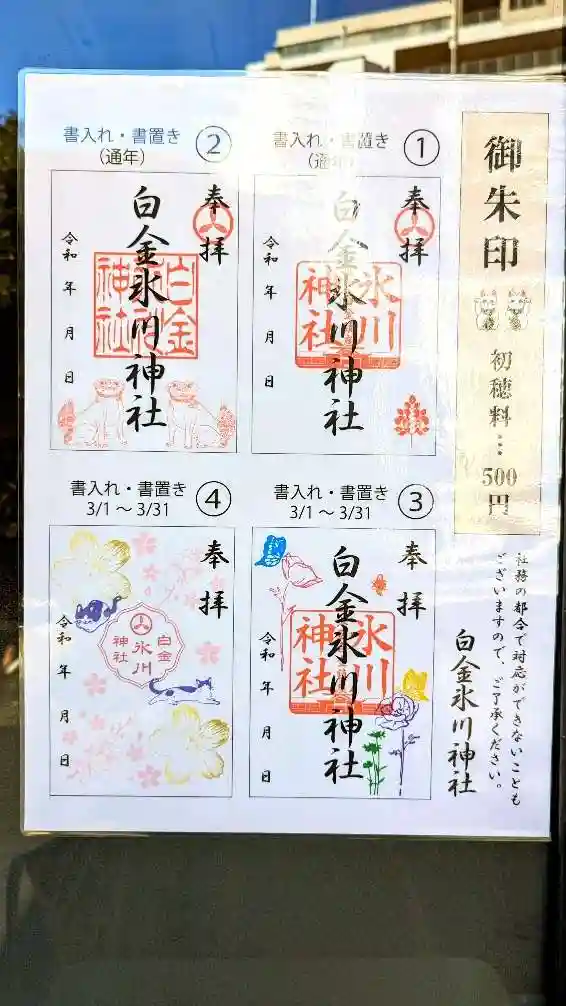 御朱印
初穂料…500円
社務の都合で対応ができないことも
ございますので、ご了承ください。
白金氷川神社
書入れ・書置き
(通年)
①
奉拝
白金氷川神社
氷川
神社
令和 年 月 日
書入れ・書置き
(通年)
②
奉拝
白金氷川神社
白金
神社
令和 年 月 日
書入れ・書置き
3/1～3/31
③
奉拝
白金氷川神社
氷川
神社
令和 年 月 日
書入れ・書置き
3/1～3/31
④
奉拝
白金
氷川
神社
令和 年 月 日